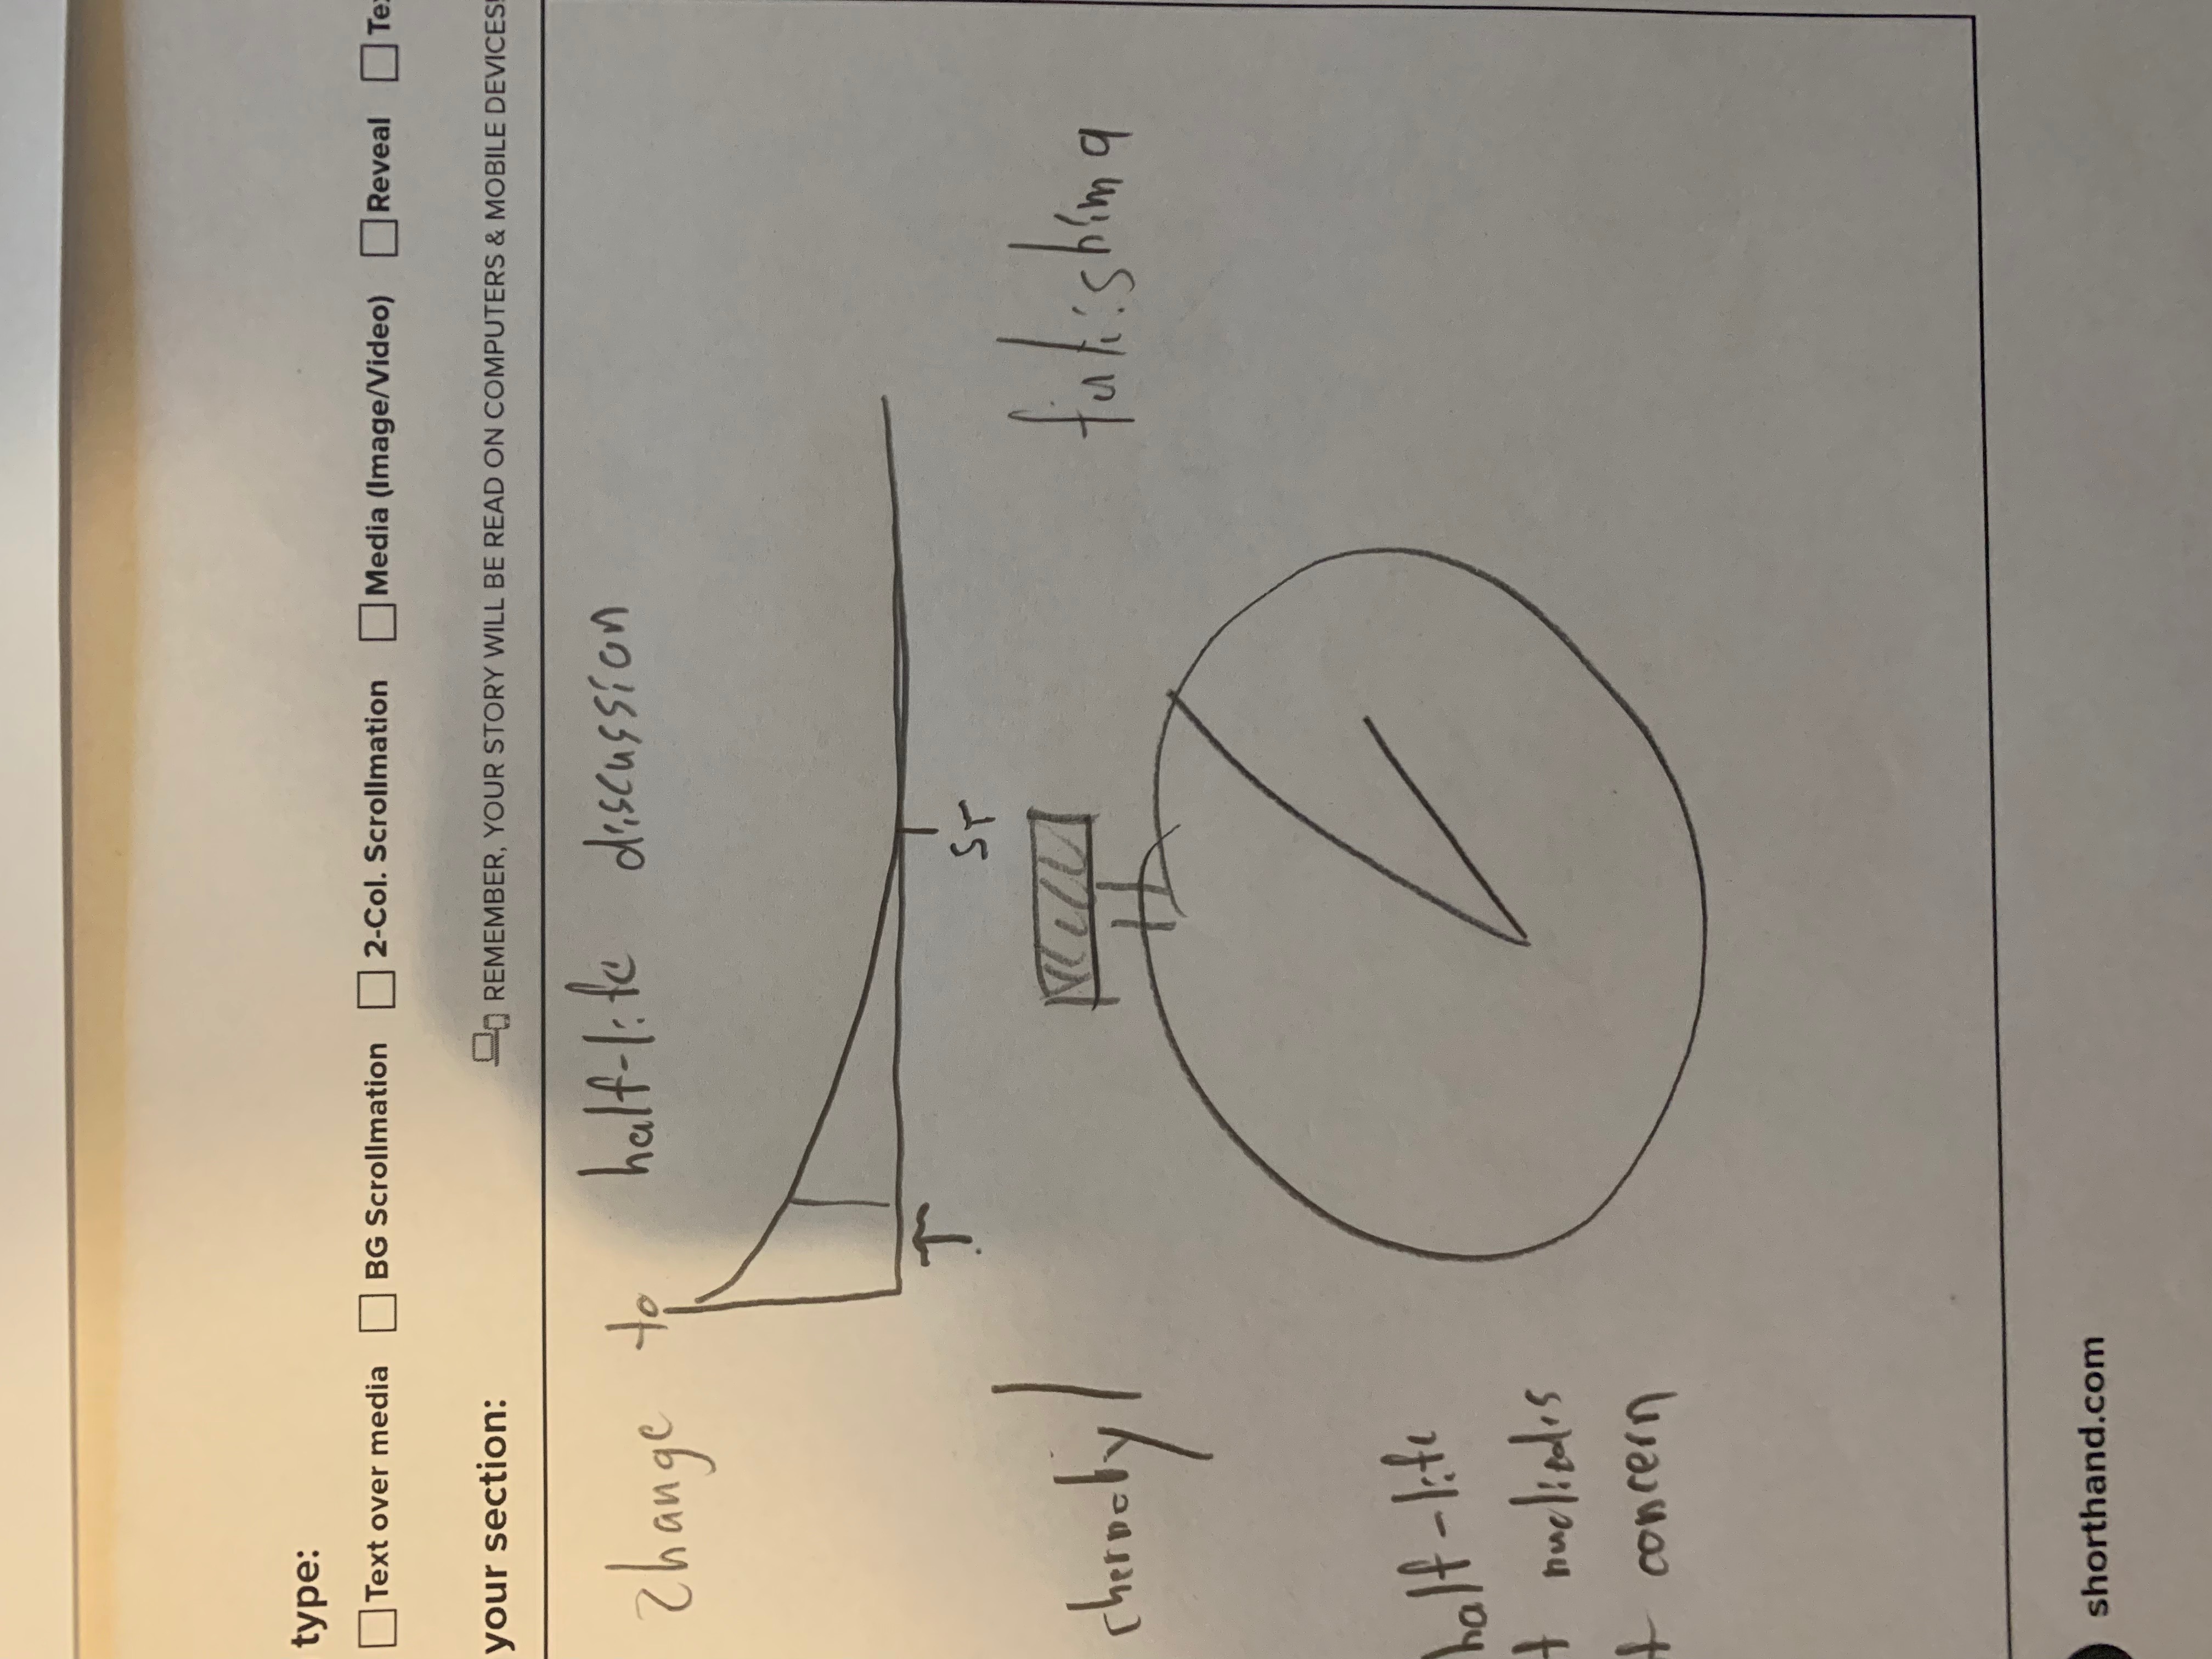 type:
Text over media BG Scrollmation 2-Col. Scrollmation Media (Image/Video) Reveal Te
your section:
REMEMBER, YOUR STORY WILL BE READ ON COMPUTERS & MOBILE DEVICES!
change to half-life discussion
T
5T
chernobyl
fukishima
half-life
nuclides
concern
shorthand.com